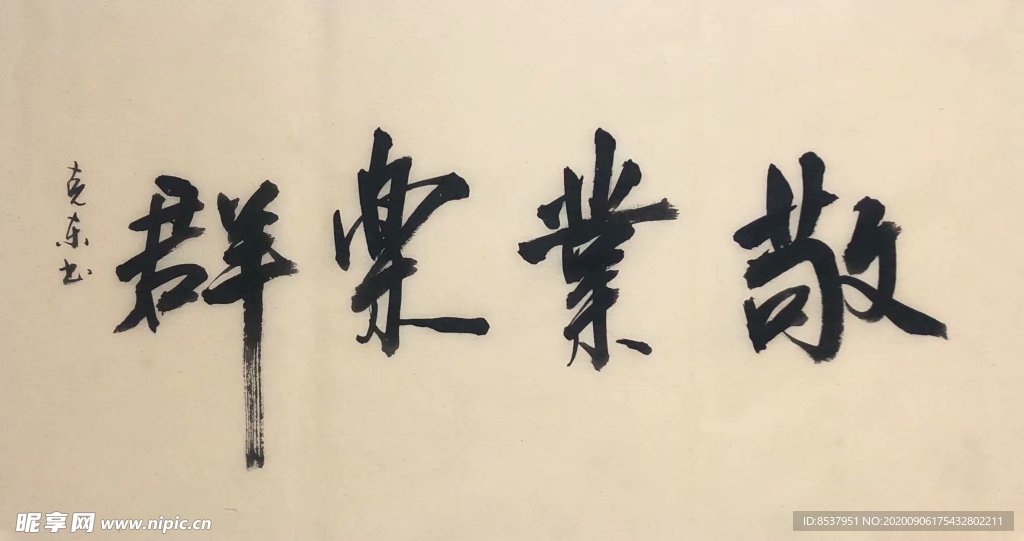 敬業樂群
克东书
昵享网 www.nipic.cn
ID:8537951 NO:20200906175432802211